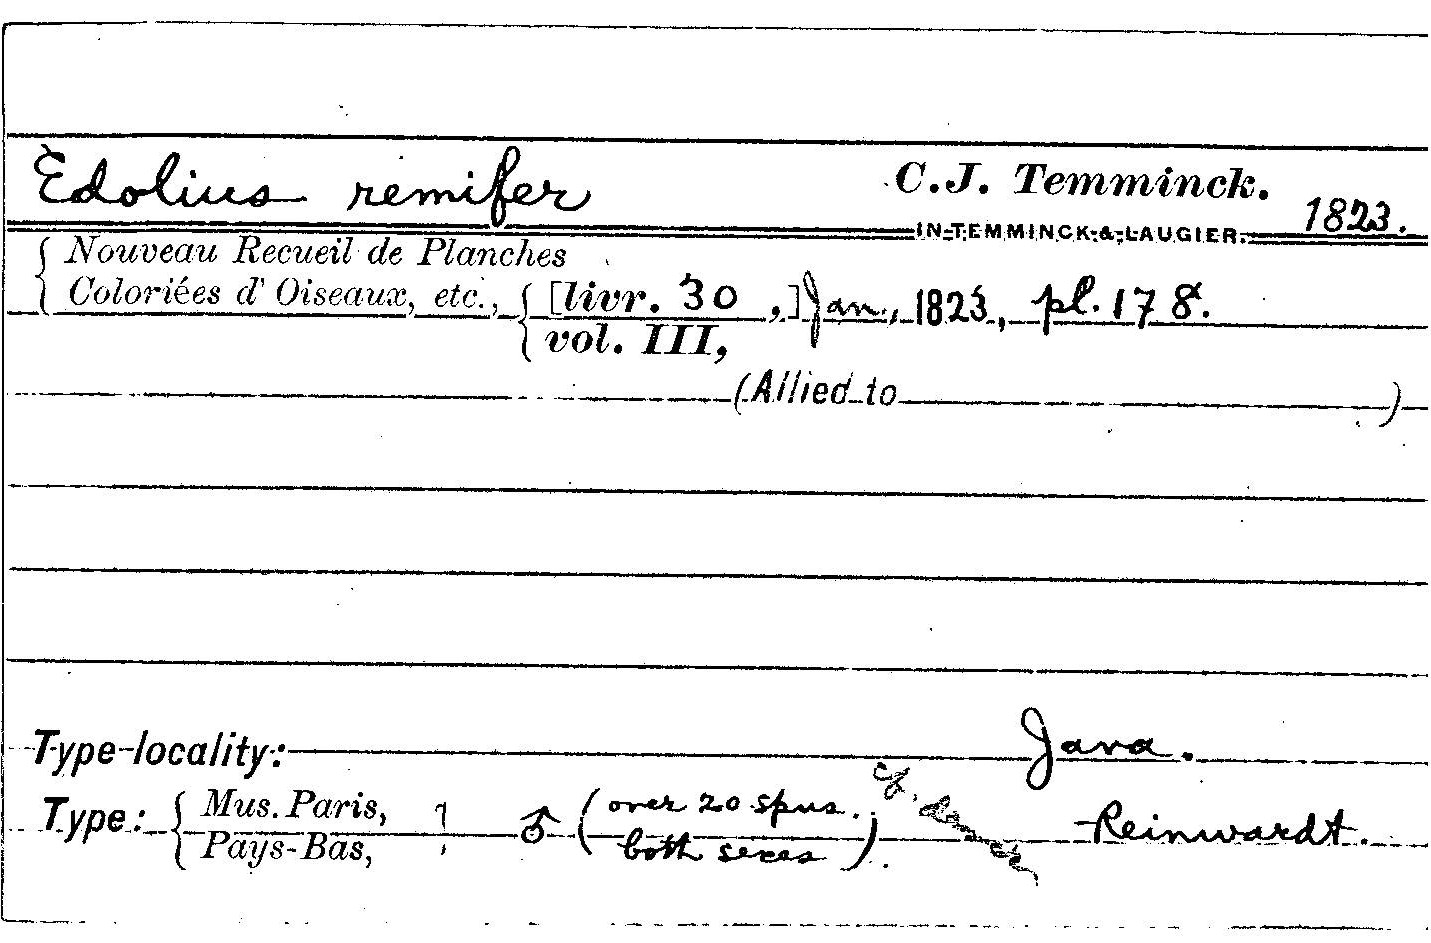 Edolius remifer C.J. Temminck. 1823.
IN TEMMINCK & LAUGIER.
{ Nouveau Recueil de Planches
Coloriées d' Oiseaux, etc., { [livr. 30 ,] Jan., 1823, pl. 178.
vol. III,
(Allied to )
Type-locality: Java.
Type: { Mus. Paris, ♂ (over 20 spms. Reinwardt.
Pays-Bas, both sexes)